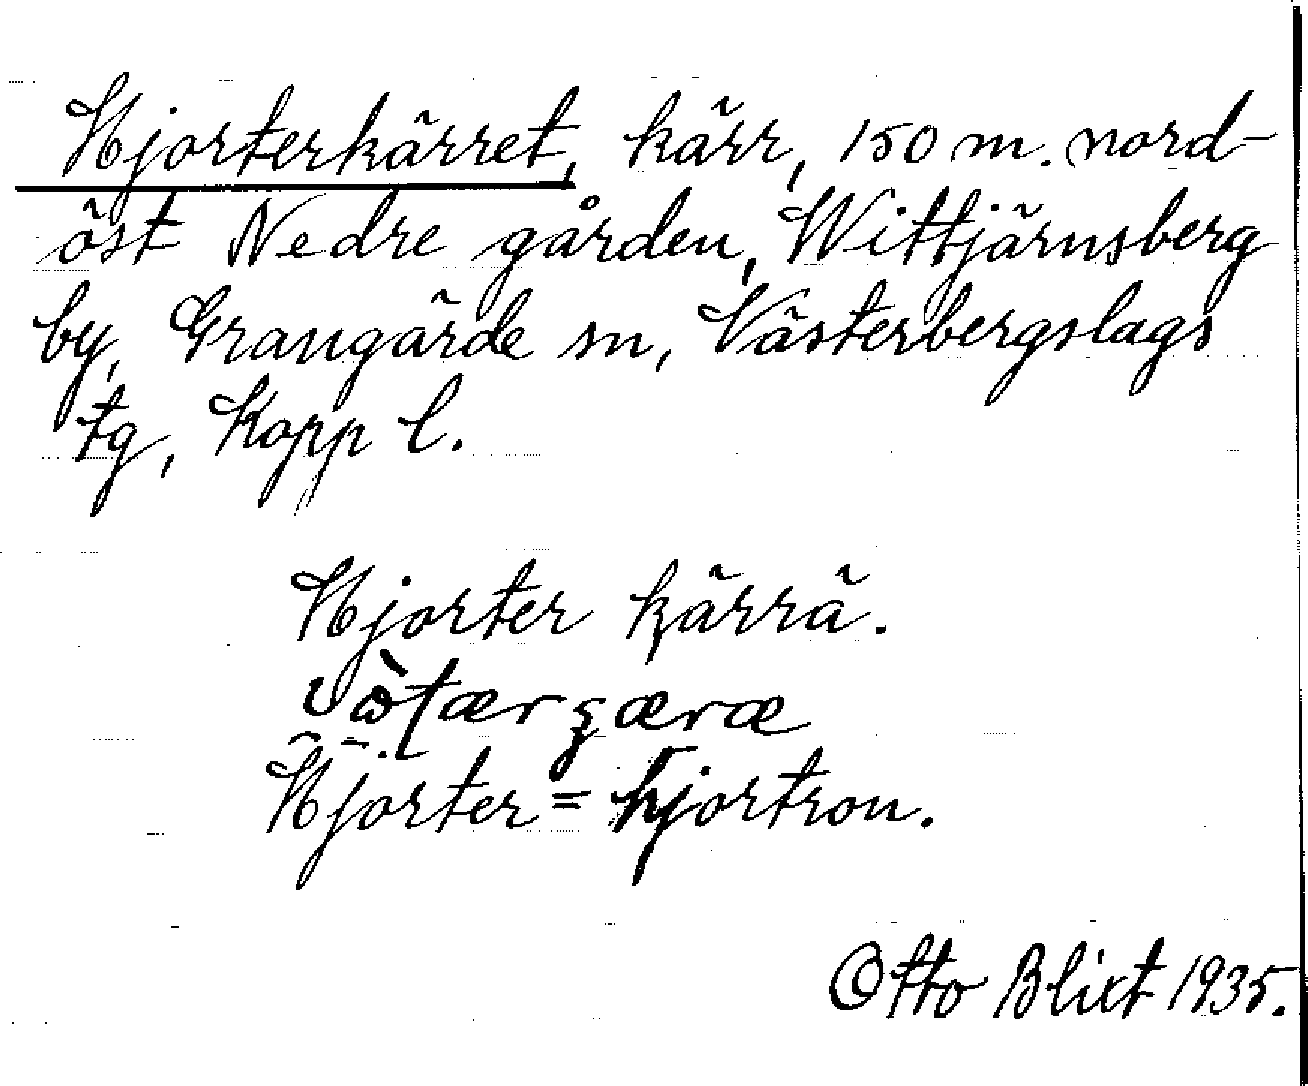 Hjorterkärret, kärr, 150 m. nord-
öst Nedre gården, Wittjärnsberg
by, Grangärde sn, Västerbergslags
tg, Kopp l.
Hjorter kärrä.
Hjorter = hjortron.
Otto Blixt 1935.